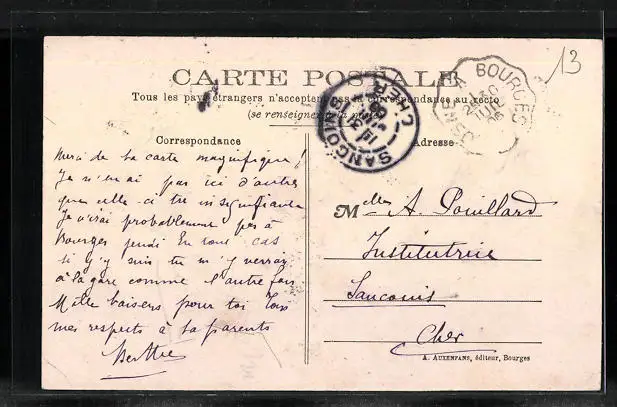 13
CARTE POSTALE
Tous les pays étrangers n'acceptent pas la correspondance au recto
(se renseigner à la poste)
BOURGES
SANCOINS
CHER
Correspondance
Adresse
Merci de ta carte magnifique !
Je n'en ai pas ici d'autres
que celle-ci très insignifiante
Je n'irai probablement pas à
Bourges jeudi En tous cas
si j'y suis tu m'y verrais
à la gare comme l'autre fois
Mille baisers pour toi Tous
mes respects à ta parents
Berthe
Melles A. Pouillard
Institutrice
Sancoins
Cher
A. AUXENFANS, éditeur, Bourges